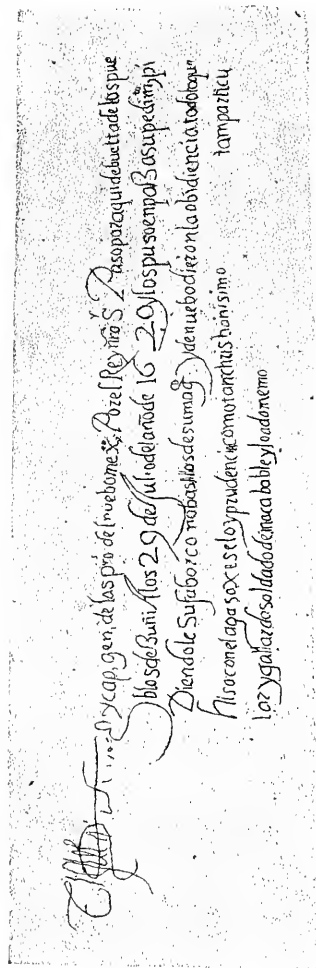 y cap. gen. de las pro del nuebo mex. Por el Rey nro Sr Paso por aqui de buelta de los pue
blos de Zuñi A los 29 de Julio del año de 1620 y los puso en paz a su pedimto pi
diendole su fabor como basallos de su magd y de nuebo dieron la obidiencia todo lo que
hiso con el agasaxe selo y prudencia como tan christianisimo tan particu
lar y gallardo soldado de inacabable y loada memo